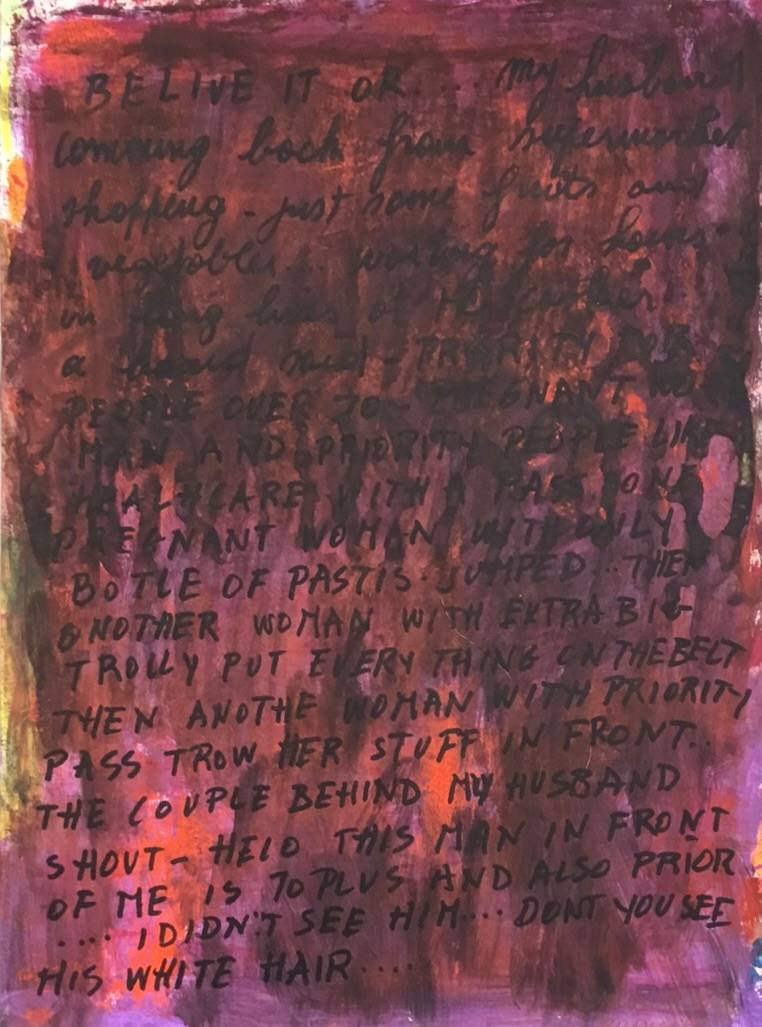 BELIVE IT OR .... my husband
comming back from supermarket
shopping - just some fruits and
vegetables ... waiting for hours
in long lines of the
a - PRIORITY FOR
PEOPLE OVER 70 - PREGNANT WO
MAN AND PRIORITY PEOPLE LIKE
HEALHCARE WITH A PASS. ONE
PREGNANT WOMAN WITH ONLY
BOTLE OF PASTIS. JUMPED ... THEN
ANOTHER WOMAN WITH EXTRA BIG
TROLLY PUT EVERY THING ON THE BELT
THEN ANOTHE WOMAN WITH PRIORITY
PASS TROW HER STUFF IN FRONT..
THE COUPLE BEHIND MY HUSBAND
SHOUT - HELO THIS MAN IN FRONT
OF ME IS 70 PLUS AND ALSO PRIOR
.... I DIDN'T SEE HIM.... DONT YOU SEE
HIS WHITE HAIR ....